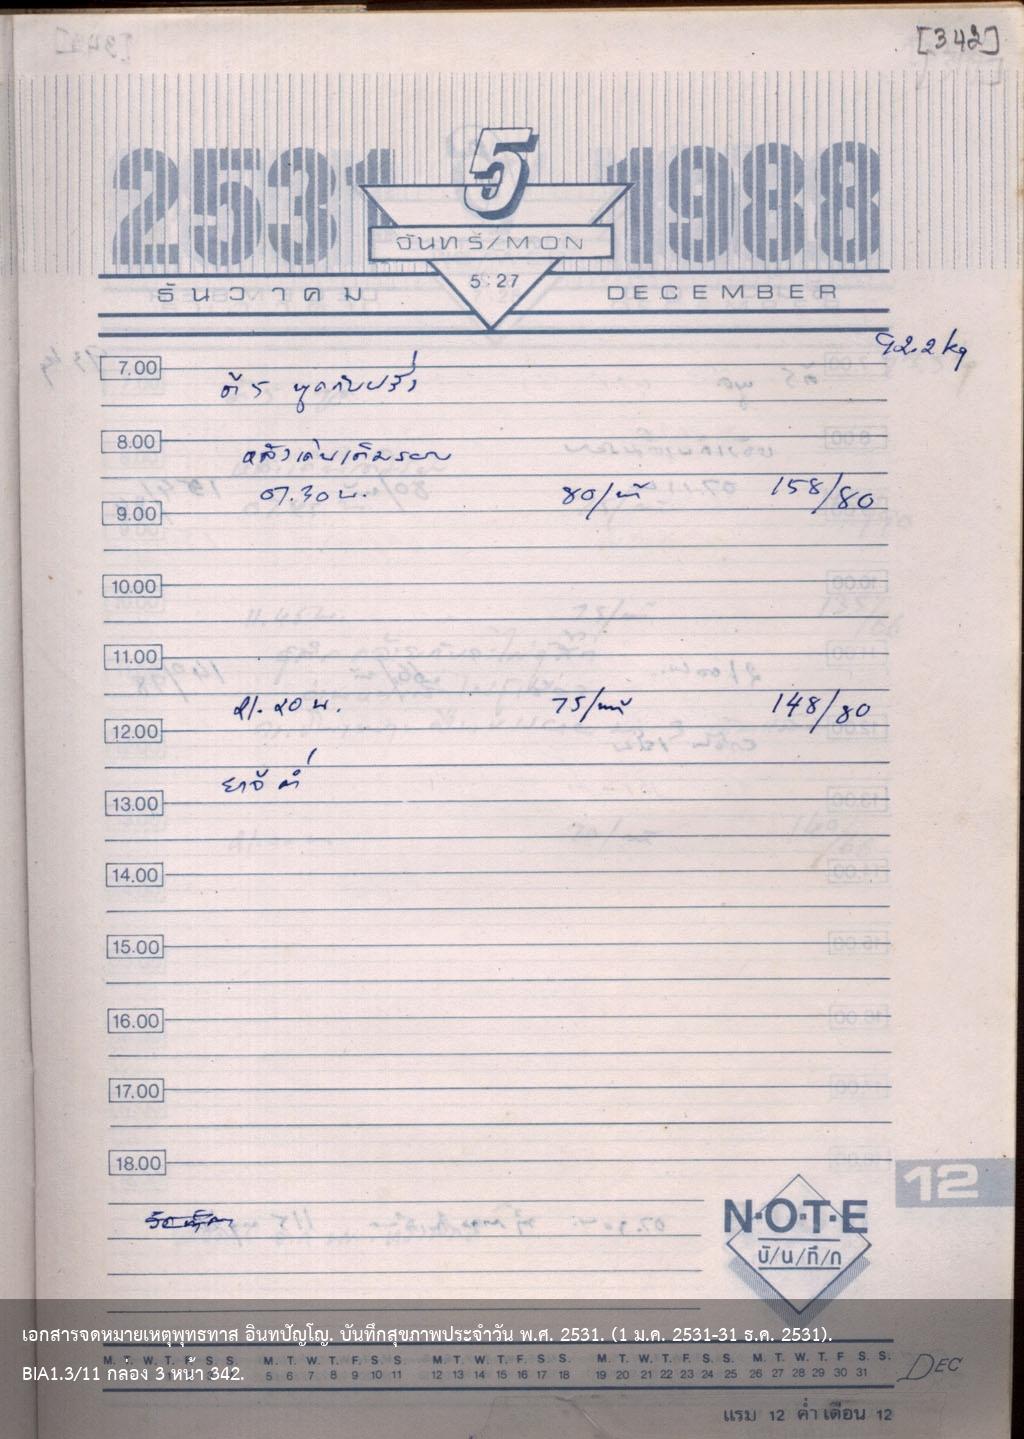 [342]
2531 5 1988
จันทร์/MON
5:27
ธันวาคม DECEMBER
92.2 kg
7.00
ตี 5 พูดกับฝรั่ง
8.00
หลังเดินเต็มรอบ
07.30 น. 80/นาที 158/80
9.00
10.00
11.00
21.20 น. 75/นาที 148/80
12.00
ยาจีค่ำ
13.00
14.00
15.00
16.00
17.00
18.00
12
N·O·T·E
บั/น/ทึ/ก
เอกสารจดหมายเหตุพุทธทาส อินทปัญโญ. บันทึกสุขภาพประจำวัน พ.ศ. 2531. (1 ม.ค. 2531-31 ธ.ค. 2531).
M. T. W. T. F. S. S. M. T. W. T. F. S. S. M. T. W. T. F. S. S. M. T. W. T. F. S. S. M. T. W. T. F S. S.
5 6 7 8 9 10 11 12 13 14 15 16 17 18 19 20 21 22 23 24 25 26 27 28 29 30 31
BIA1.3/11 กล่อง 3 หน้า 342.
DEC
แรม 12 ค่ำ เดือน 12